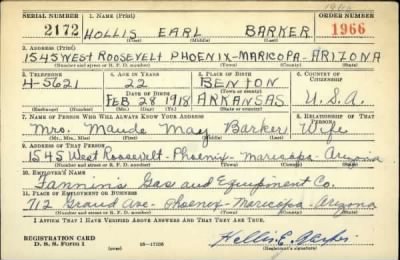 SERIAL NUMBER 1. NAME (Print) ORDER NUMBER
2172 HOLLIS EARL BARKER 1966
(First) (Middle) (Last)
3. ADDRESS (Print)
1545 WEST ROOSEVELT PHOENIX-MARICOPA-ARIZONA
(Number and street or R. F. D. number) (Town) (County) (State)
3. TELEPHONE 4. AGE IN YEARS 5. PLACE OF BIRTH 6. COUNTRY OF CITIZENSHIP
4-5621 22 BENTON
DATE OF BIRTH (Town or county)
FEB 28 1918 ARKANSAS U.S.A.
(Exchange) (Number) (Mo.) (Day) (Yr.) (State or country)
7. NAME OF PERSON WHO WILL ALWAYS KNOW YOUR ADDRESS 8. RELATIONSHIP OF THAT PERSON
Mrs. Maude May Barker Wife
(Mr., Mrs., Miss) (First) (Middle) (Last)
9. ADDRESS OF THAT PERSON
1545 West Roosevelt - Phoenix - Maricopa - Arizona
(Number and street or R. F. D. number) (Town) (County) (State)
10. EMPLOYER'S NAME
Fannin's Gas and Equipment Co.
11. PLACE OF EMPLOYMENT OR BUSINESS
712 Grand Ave - Phoenix - Maricopa - Arizona
(Number and street or R. F. D. number) (Town) (County) (State)
I AFFIRM THAT I HAVE VERIFIED ABOVE ANSWERS AND THAT THEY ARE TRUE.
REGISTRATION CARD
D. S. S. Form 1 16-17105 Hollis E. Barker